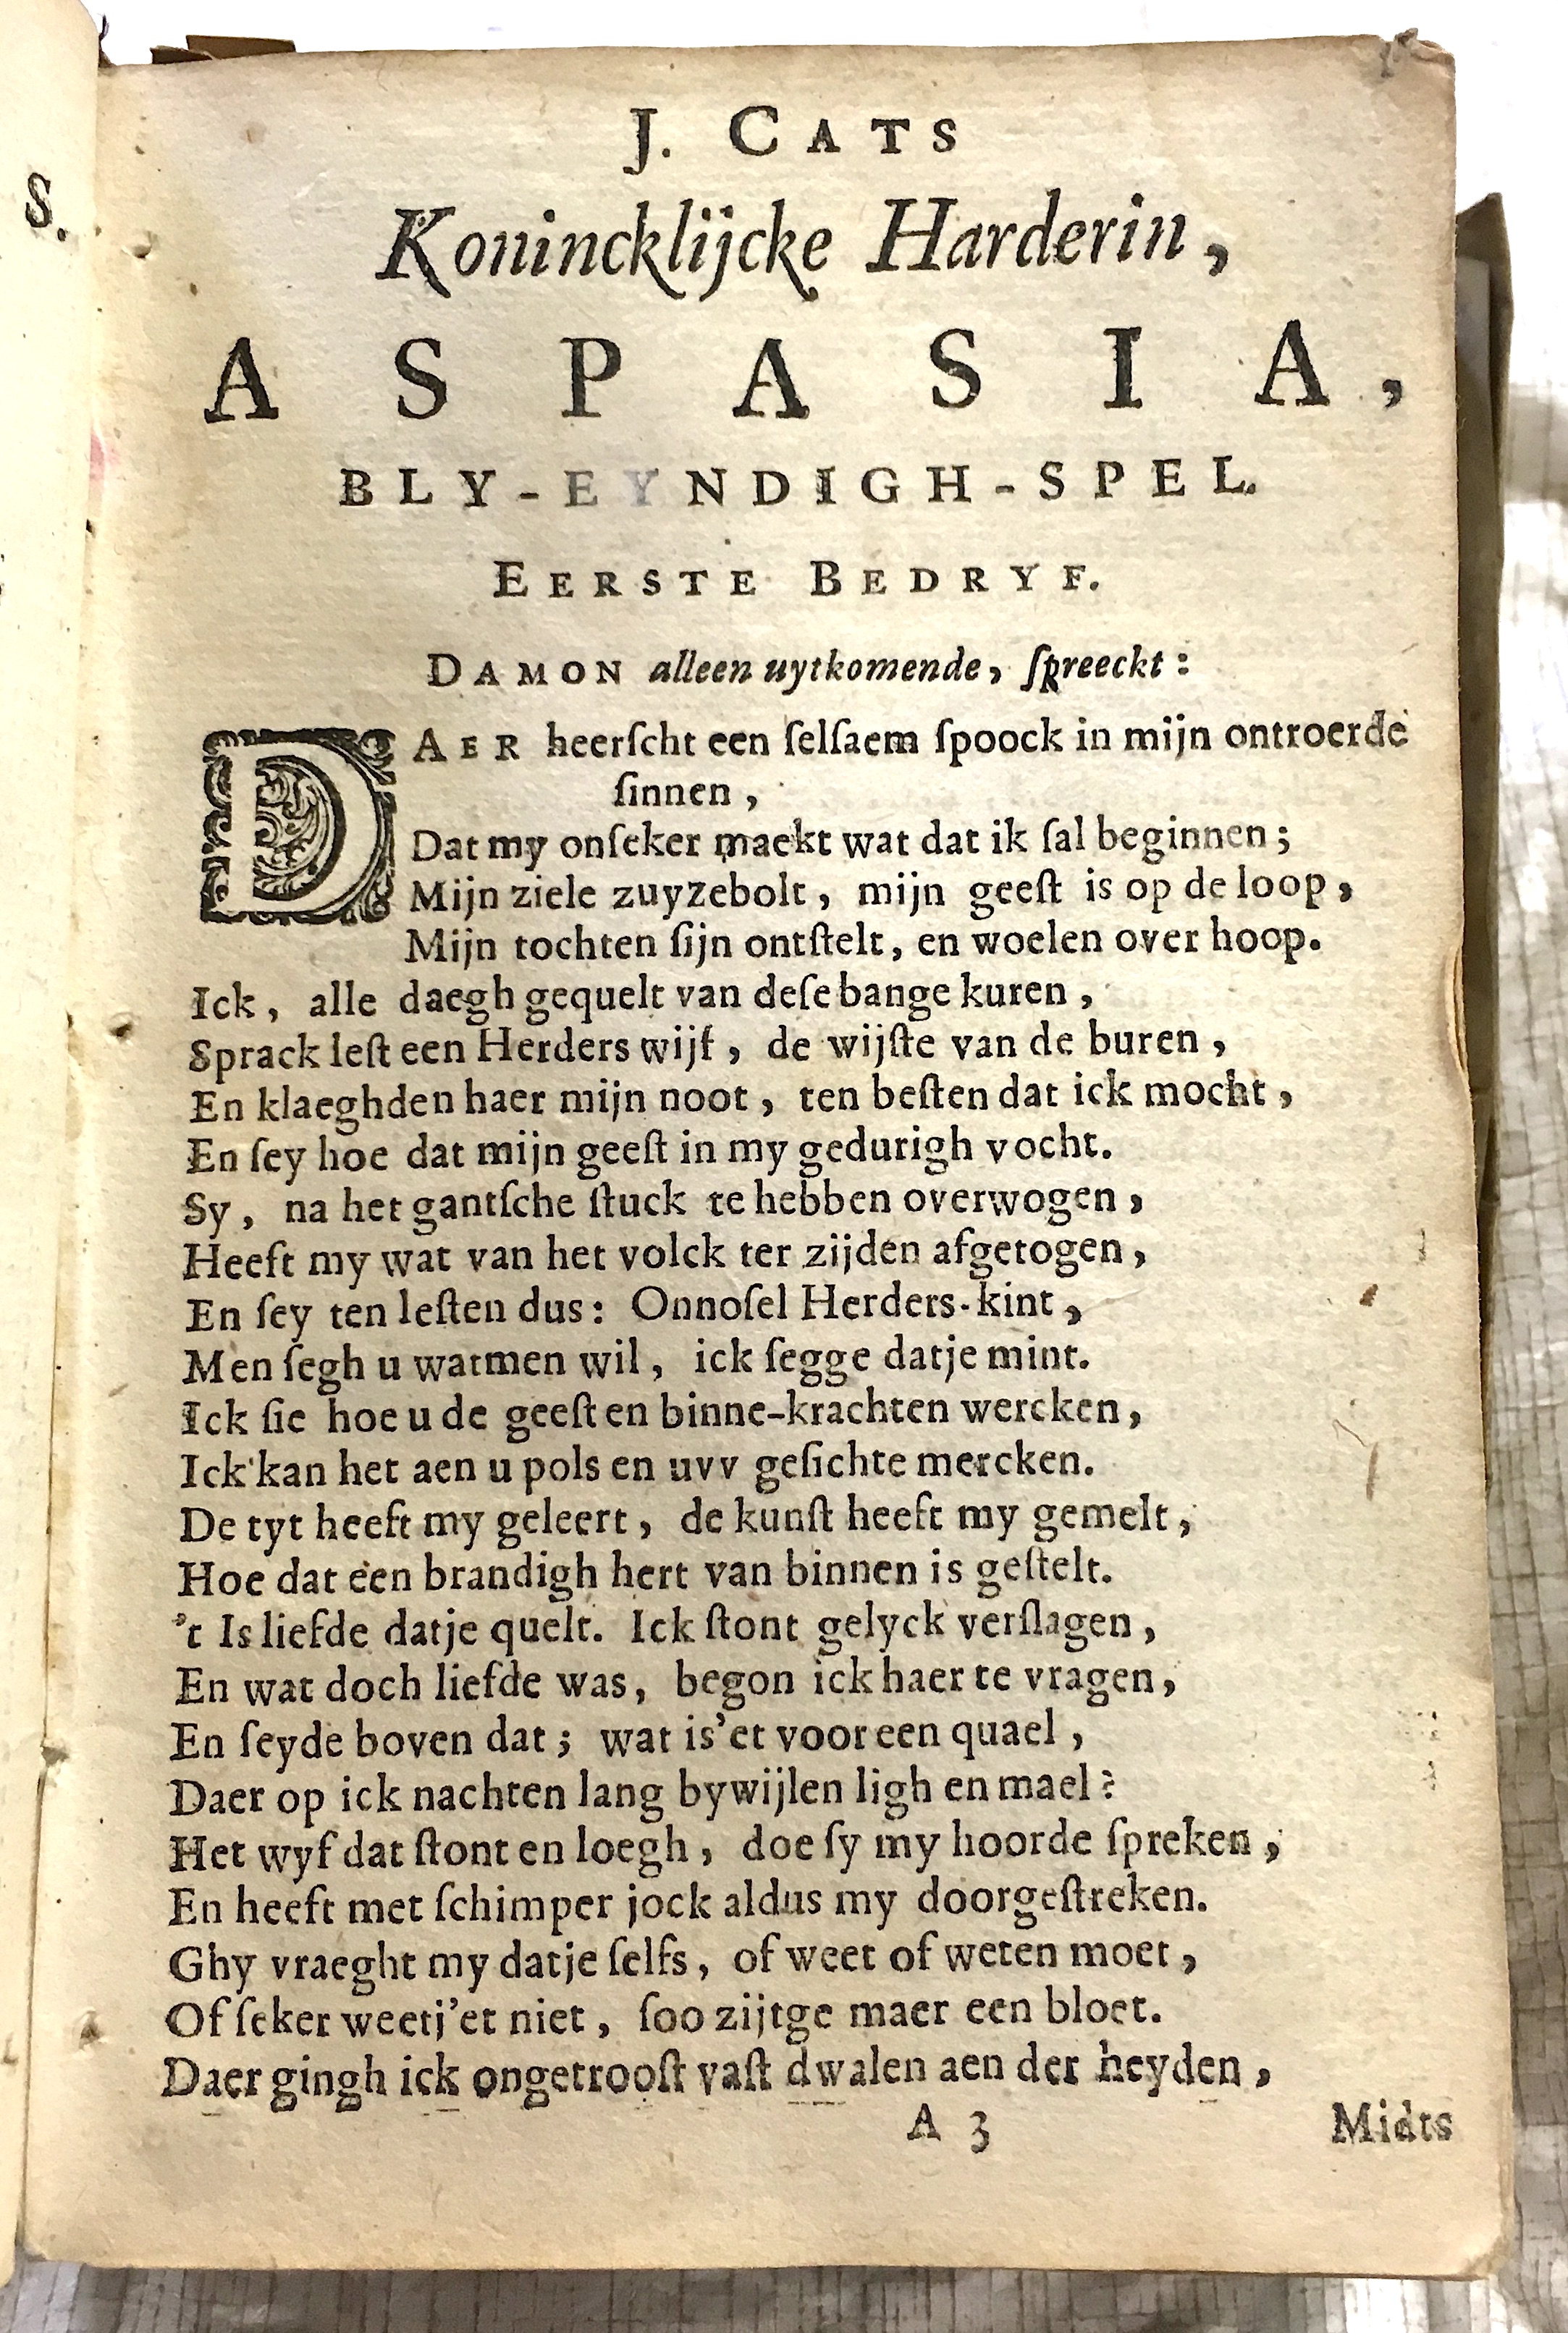 S.
J. CATS
Konincklijcke Harderin,
ASPASIA,
BLY-EYNDIGH-SPEL.
EERSTE BEDRYF.
DAMON alleen uytkomende, ſpreeckt:
DAER heerſcht een ſelſaem ſpoock in mijn ontroerde
ſinnen,
Dat my onſeker maekt wat dat ik ſal beginnen;
Mijn ziele zuyzebolt, mijn geeſt is op de loop,
Mijn tochten ſijn ontſtelt, en woelen over hoop.
Ick, alle daegh gequelt van deſe bange kuren,
Sprack leſt een Herders wijf, de wijſte van de buren,
En klaeghden haer mijn noot, ten beſten dat ick mocht,
En ſey hoe dat mijn geeſt in my gedurigh vocht.
Sy, na het gantſche ſtuck te hebben overwogen,
Heeft my wat van het volck ter zijden afgetogen,
En ſey ten leſten dus: Onnoſel Herders-kint,
Men ſegh u watmen wil, ick ſegge datje mint.
Ick ſie hoe u de geeſt en binne-krachten wercken,
Ick kan het aen u pols en uvv geſichte mercken.
De tyt heeft my geleert, de kunſt heeft my gemelt,
Hoe dat een brandigh hert van binnen is geſtelt.
't Is liefde datje quelt. Ick ſtont gelyck verſlagen,
En wat doch liefde was, begon ick haer te vragen,
En ſeyde boven dat; wat is'et voor een quael,
Daer op ick nachten lang bywijlen ligh en mael?
Het wyf dat ſtont en loegh, doe ſy my hoorde ſpreken,
En heeft met ſchimper jock aldus my doorgeſtreken.
Ghy vraeght my datje ſelfs, of weet of weten moet,
Of ſeker weetj'et niet, ſoo zijtge maer een bloet.
Daer gingh ick ongetrooſt vaſt dwalen aen der heyden,
A 3
Midts